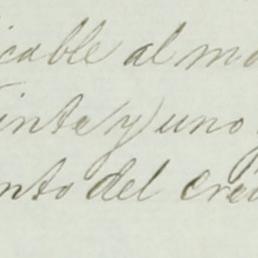 icable al mo
inta y uno
nto del cré